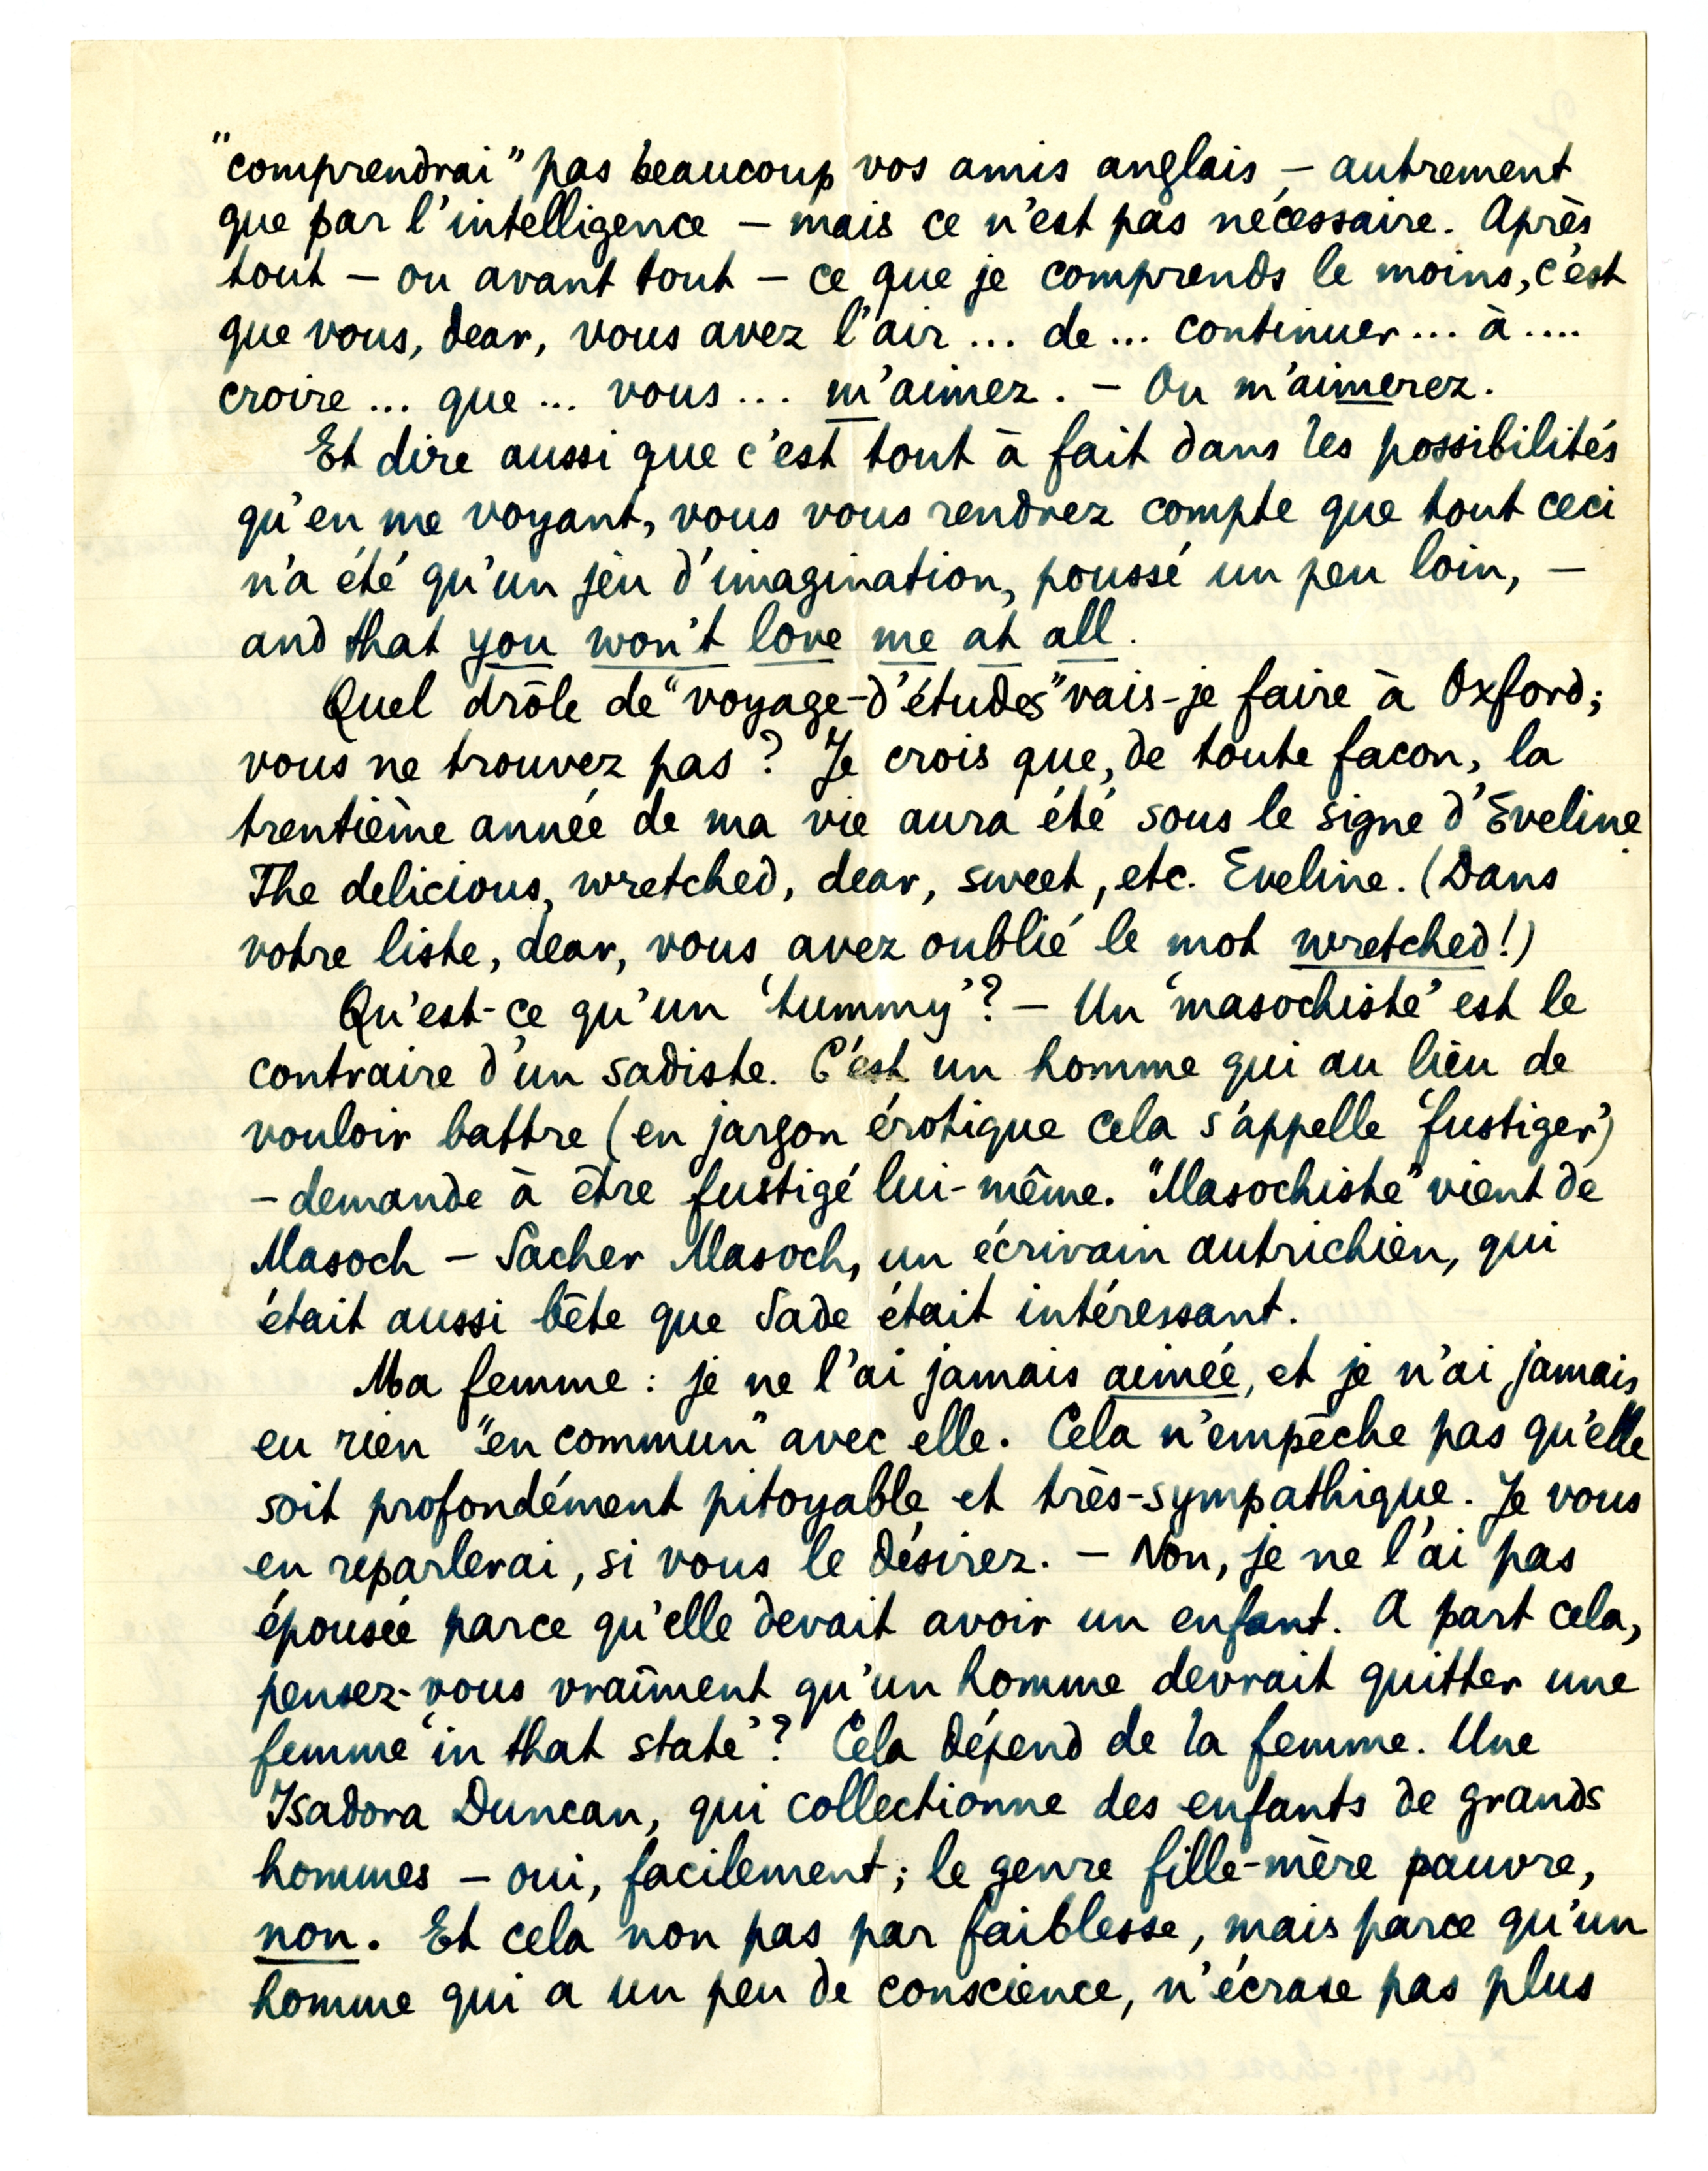 "comprendrai" pas beaucoup vos amis anglais – autrement
que par l'intelligence – mais ce n'est pas nécessaire. Après
tout – ou avant tout – ce que je comprends le moins, c'est
que vous, dear, vous avez l'air ... de ... continuer ... à ....
croire ... que ... vous ... m'aimez. – Ou m'aimerez.
Et dire aussi que c'est tout à fait dans les possibilités
qu'en me voyant, vous vous rendrez compte que tout ceci
n'a été qu'un jeu d'imagination, poussé un peu loin, –
and that you won't love me at all.
Quel drôle de "voyage-d'études" vais-je faire à Oxford;
vous ne trouvez pas? Je crois que, de toute facon, la
trentième année de ma vie aura été sous le signe d'Eveline.
The delicious, wretched, dear, sweet, etc. Eveline. (Dans
votre liste, dear, vous avez oublié le mot wretched!)
Qu'est-ce qu'un 'tummy'? – Un 'masochiste' est le
contraire d'un sadiste. C'est un homme qui au lieu de
vouloir battre (en jargon érotique cela s'appelle 'fustiger')
– demande à être fustigé lui-même. "Masochiste" vient de
Masoch – Sacher Masoch, un écrivain autrichien, qui
était aussi bête que Sade était intéressant.
Ma femme: je ne l'ai jamais aimée, et je n'ai jamais
eu rien "en commun" avec elle. Cela n'empêche pas qu'elle
soit profondément pitoyable et très-sympathique. Je vous
en reparlerai, si vous le désirez. – Non, je ne l'ai pas
épousée parce qu'elle devait avoir un enfant. A part cela,
pensez-vous vraiment qu'un homme devrait quitter une
femme 'in that state'? Cela dépend de la femme. Une
Isadora Duncan, qui collectionne des enfants de grands
hommes – oui, facilement; le genre fille-mère pauvre,
non. Et cela non pas par faiblesse, mais parce qu'un
homme qui a un peu de conscience, n'écrase pas plus